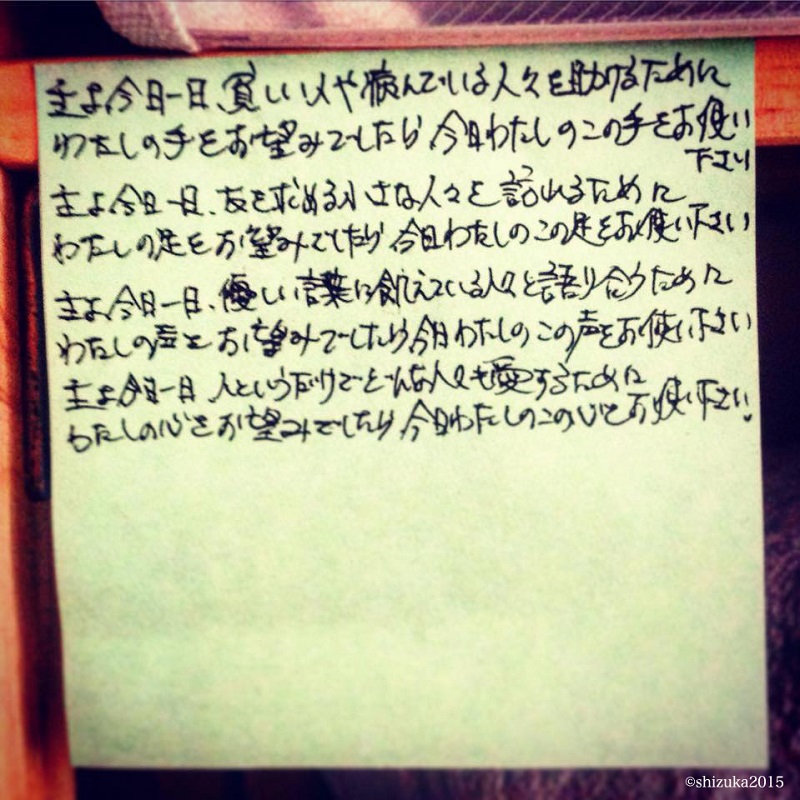 主よ今日一日、貧しい人や病んでいる人々を助けるために
わたしの手をお望みでしたら今日わたしのこの手をお使い
下さい
主よ今日一日、友を求める小さな人々を訪れるために
わたしの足をお望みでしたら今日わたしのこの足をお使い下さい
主よ今日一日、優しい言葉に飢えている人々と語り合うために
わたしの声をお望みでしたら今日わたしのこの声をお使い下さい
主よ今日一日、人というだけでどんな人々も愛するために
わたしの心をお望みでしたら今日わたしのこの心をお使い下さい。
©shizuka2015